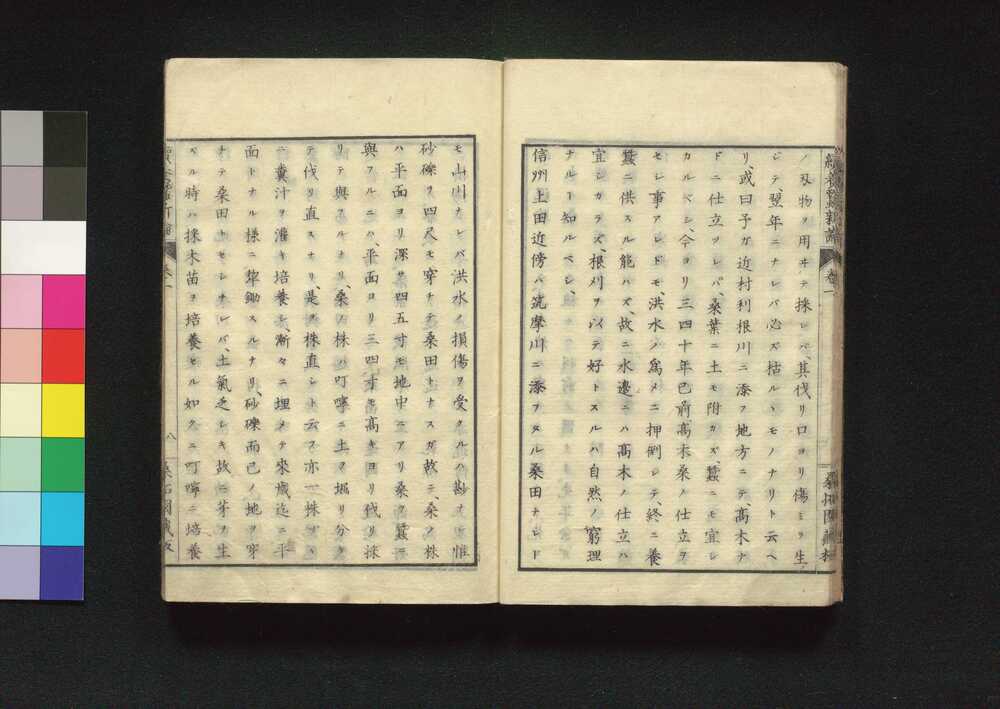 ノ刄物ヲ用ヰテ採レバ、其伐リ口ヨリ傷ミヲ生
ジテ、翌年ニナレバ必ズ枯ルヽモノナリト云ヘ
リ、或曰予ガ近村利根川ニ添フ地方ニテ、髙木ナ
ドニ仕立ツレバ、桑葉ニ土モ附カズ蠶ニモ宜シ
カルベシ、今ヨリ三四十年已前髙木桑ノ仕立ヲ
セシ事アレドモ、洪水ノ爲メニ押倒シテ、終ニ養
蠶ニ供スル能ハズ、故ニ水邊ニハ髙木ノ仕立ハ
宜シカラズ、根刈ヲ以テ好トスルハ自然ノ窮理
ナルト知ルベシ、
信州上田近傍ハ筑摩川ニ添フタル桑田ナレド
モ山川ナレバ洪水ノ損傷ヲ受クルハ尠ナシ惟
砂礫ヲ四尺モ穿チテ桑田トナスガ故ニ、桑ノ株
ハ平面ヨリ深サ四五寸モ地中ニアリ桑ヲ蠶ニ
與フルニハ、平面ヨリ三四寸モ髙キヨリ伐リ採
リテ與フルナリ、桑ノ株ハ叮嚀ニ土ヲ堀リ分ケ
テ伐リ直スナリ、是ヲ株直シト云フ亦一株ヅヽ
ニ糞汁ヲ灌キ培養シ、漸々ニ埋メテ來歳迄ニ平
面トナル様ニ犂鋤スルナリ、砂礫而已ノ地ヲ穿
チテ桑田トセシナレバ、土氣乏シキ故ニ芽ヲ生
ベル時ハ採木苗ヲ培養セル如クニ叮嚀ニ培養
卷一
八